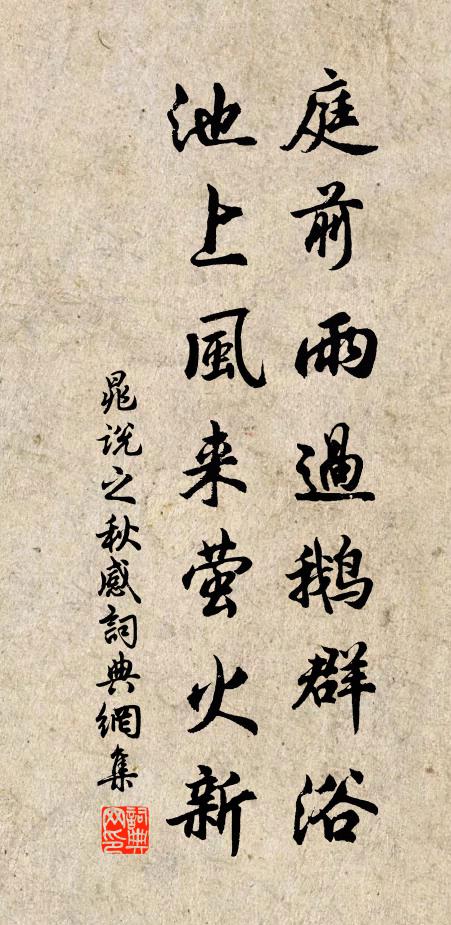 庭前雨過鵝群浴
池上風来萤火新
晁說之秋感詞典網集
詞典網印